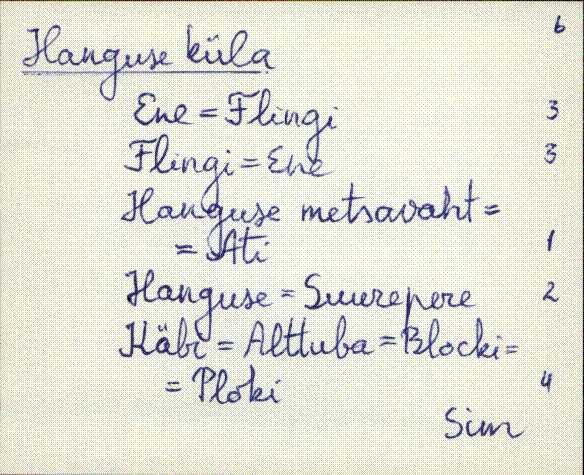 6
Hanguse küla
Ene = Flingi 3
Flingi = Ene 3
Hanguse metsavaht =
= Ati 1
Hanguse = Suurepere 2
Käbi = Alttuba = Blocki =
= Ploki 4
Sim